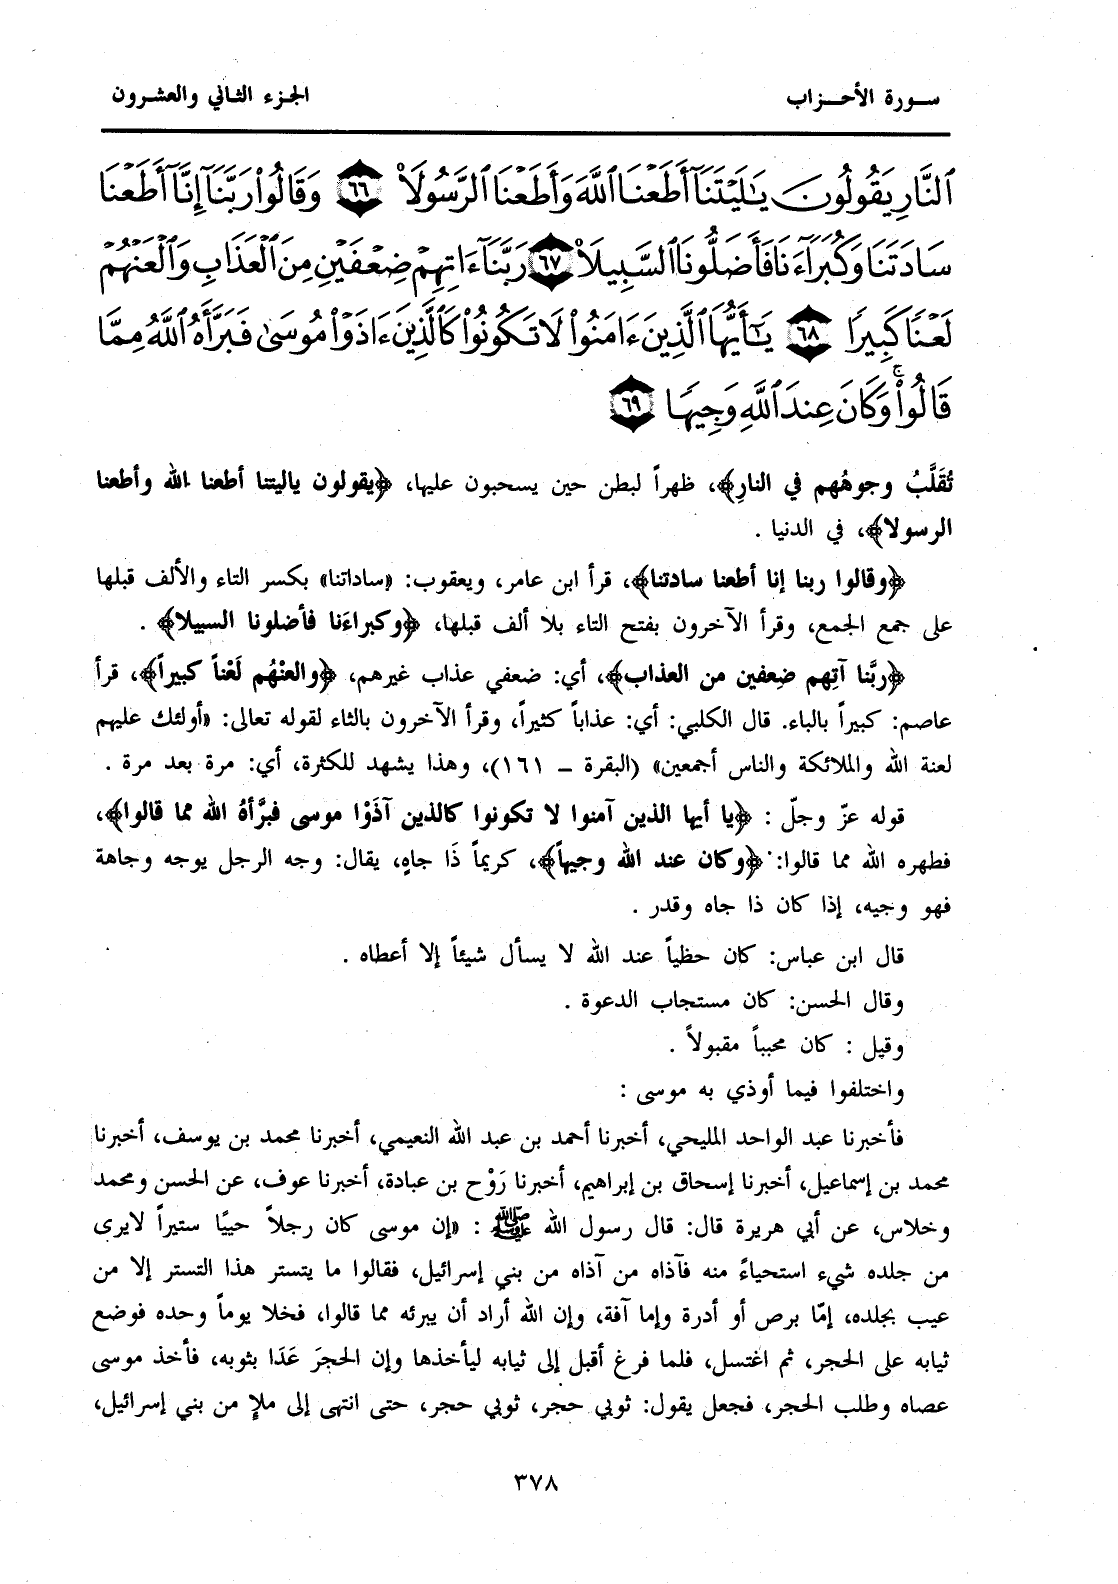 سـورة الأحـزاب
الجزء الثاني والعشرون
ٱلنَّارِ يَقُولُونَ يَٰلَيْتَنَآ أَطَعْنَا ٱللَّهَ وَأَطَعْنَا ٱلرَّسُولَا۠ ٦٦ وَقَالُوا۟ رَبَّنَآ إِنَّآ أَطَعْنَا
سَادَتَنَا وَكُبَرَآءَنَا فَأَضَلُّونَا ٱلسَّبِيلَا۠ ٦٧ رَبَّنَآ ءَاتِهِمْ ضِعْفَيْنِ مِنَ ٱلْعَذَابِ وَٱلْعَنْهُمْ
لَعْنًا كَبِيرًا ٦٨ يَٰٓأَيُّهَا ٱلَّذِينَ ءَامَنُوا۟ لَا تَكُونُوا۟ كَٱلَّذِينَ ءَاذَوْا۟ مُوسَىٰ فَبَرَّأَهُ ٱللَّهُ مِمَّا
قَالُوا۟ۚ وَكَانَ عِندَ ٱللَّهِ وَجِيهًا ٦٩
تُقَلَّبُ وجوهُهم في النارِ﴾، ظهراً لبطن حين يسحبون عليها، ﴿يقولون ياليتنا أطعنا الله وأطعنا
الرسولا﴾، في الدنيا .
﴿وقالوا ربنا إنا أطعنا سادتنا﴾، قرأ ابن عامر، ويعقوب: «ساداتنا» بكسر التاء والألف قبلها
على جمع الجمع، وقرأ الآخرون بفتح التاء بلا ألف قبلها، ﴿وكبراءَنا فأضلونا السبيلا﴾ .
﴿ربَّنا آتِهم ضِعفين من العذاب﴾، أي: ضعفي عذاب غيرهم، ﴿والعنْهُم لَعْناً كبيراً﴾، قرأ
عاصم: كبيراً بالباء. قال الكلبي: أي: عذاباً كثيراً، وقرأ الآخرون بالثاء لقوله تعالى: «أولئك عليهم
لعنة الله والملائكة والناس أجمعين» (البقرة ــ ١٦١)، وهذا يشهد للكثرة، أي: مرة بعد مرة .
قوله عزّ وجلّ : ﴿يا أيها الذين آمنوا لا تكونوا كالذين آذَوْا موسى فبرَّأهُ الله مما قالوا﴾،
فطهره الله مما قالوا: ﴿وكان عند الله وجيهاً﴾، كريماً ذَا جاهٍ، يقال: وجه الرجل يوجه وجاهة
فهو وجيه، إذا كان ذا جاه وقدر .
قال ابن عباس: كان حظياً عند الله لا يسأل شيئاً إلا أعطاه .
وقال الحسن: كان مستجاب الدعوة .
وقيل : كان محبباً مقبولاً .
واختلفوا فيما أوذي به موسى :
فأخبرنا عبد الواحد المليحي، أخبرنا أحمد بن عبد الله النعيمي، أخبرنا محمد بن يوسف، أخبرنا
محمد بن إسماعيل، أخبرنا إسحاق بن إبراهيم، أخبرنا رَوْح بن عبادة، أخبرنا عوف، عن الحسن ومحمد
وخلاس، عن أبي هريرة قال: قال رسول الله ﷺ : «إن موسى كان رجلاً حييًا ستيراً لايرى
من جلده شيء استحياءً منه فآذاه من آذاه من بني إسرائيل، فقالوا ما يتستر هذا التستر إلا من
عيب بجلده، إمّا برص أو أدرة وإما آفة، وإن الله أراد أن يبرئه مما قالوا، فخلا يوماً وحده فوضع
ثيابه على الحجر، ثم اغتسل، فلما فرغ أقبل إلى ثيابه ليأخذها وإن الحجرَ عَدَا بثوبه، فأخذ موسى
عصاه وطلب الحجر، فجعل يقول: ثوبي حجر، ثوبي حجر، حتى انتهى إلى ملإٍ من بني إسرائيل،
٣٧٨